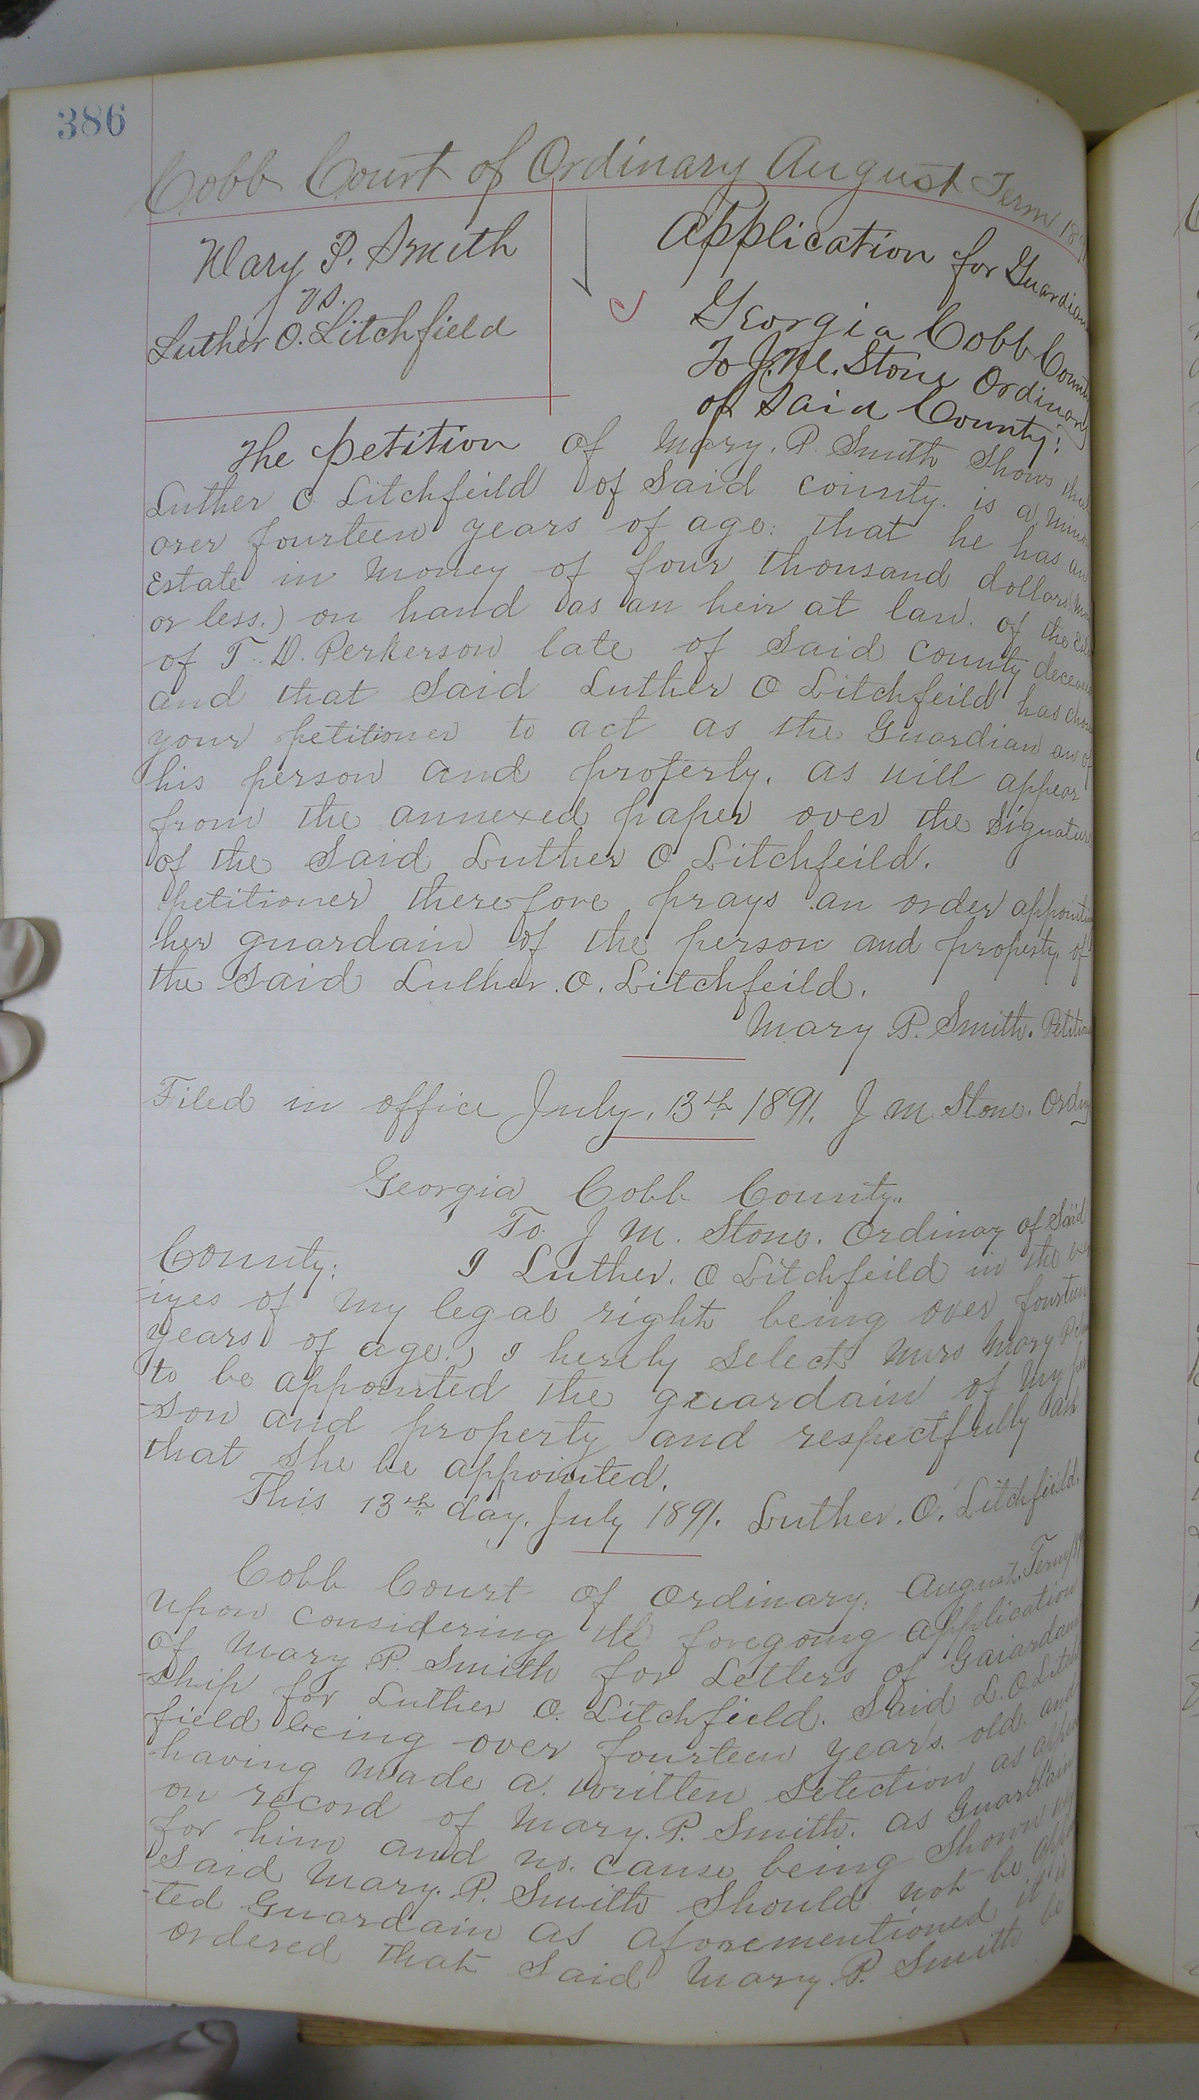 386
Cobb Court of Ordinary August Term 189
Mary P. Smith
vs.
Luther O. Litchfield
Application for Guardian
Georgia Cobb County
To J. M. Stone Ordinary
of Said County:
The petition of Mary. P. Smith Shows that
Luther O Litchfeild of Said county. is a Minor
over fourteen years of age: that he has an
Estate in Money of four thousand dollars (
or less.) on hand as an heir at law. of the
of T. D. Perkerson late of Said county deceased
and that Said Luther O Litchfeild has
your petitioner to act as the Guardian
his person and property. as will appear
from the annexed paper over the Signature
of the Said Luther O Litchfeild.
petitioner therefore prays an order appoint
her guardain of the person and property. of
the Said Luther. O. Litchfeild.
Mary P. Smith. Petition
Filed in office July. 13th 1891. J M Stone. Ordny
Georgia Cobb County.
To J M. Stone. Ordinary of Said
County: I Luther. O Litchfeild in the
izes of my legal right being over fourteen
years of age., I hereby Selects Mrs Mary
to be appointed the guardain of My per
-son and property and respectfully ask
that She be appointed.
This 13th day. July 1891. Luther. O. Litchfeild.
Cobb Court of Ordinary. August. Term
Upon considering the foregoing application
of Mary P. Smith for Letters of Gaiardan
-ship for Luther O. Litchfield. Said L. O. Litch
field being over fourteen year's. old. and
having Made a. written Selection as
on record of Mary. P. Smith. as Guardain
for him and no. cause being Shown
Said Mary. P. Smith Should not be
ted Guardain as aforementioned it is
ordered that Said Mary. P. Smith be